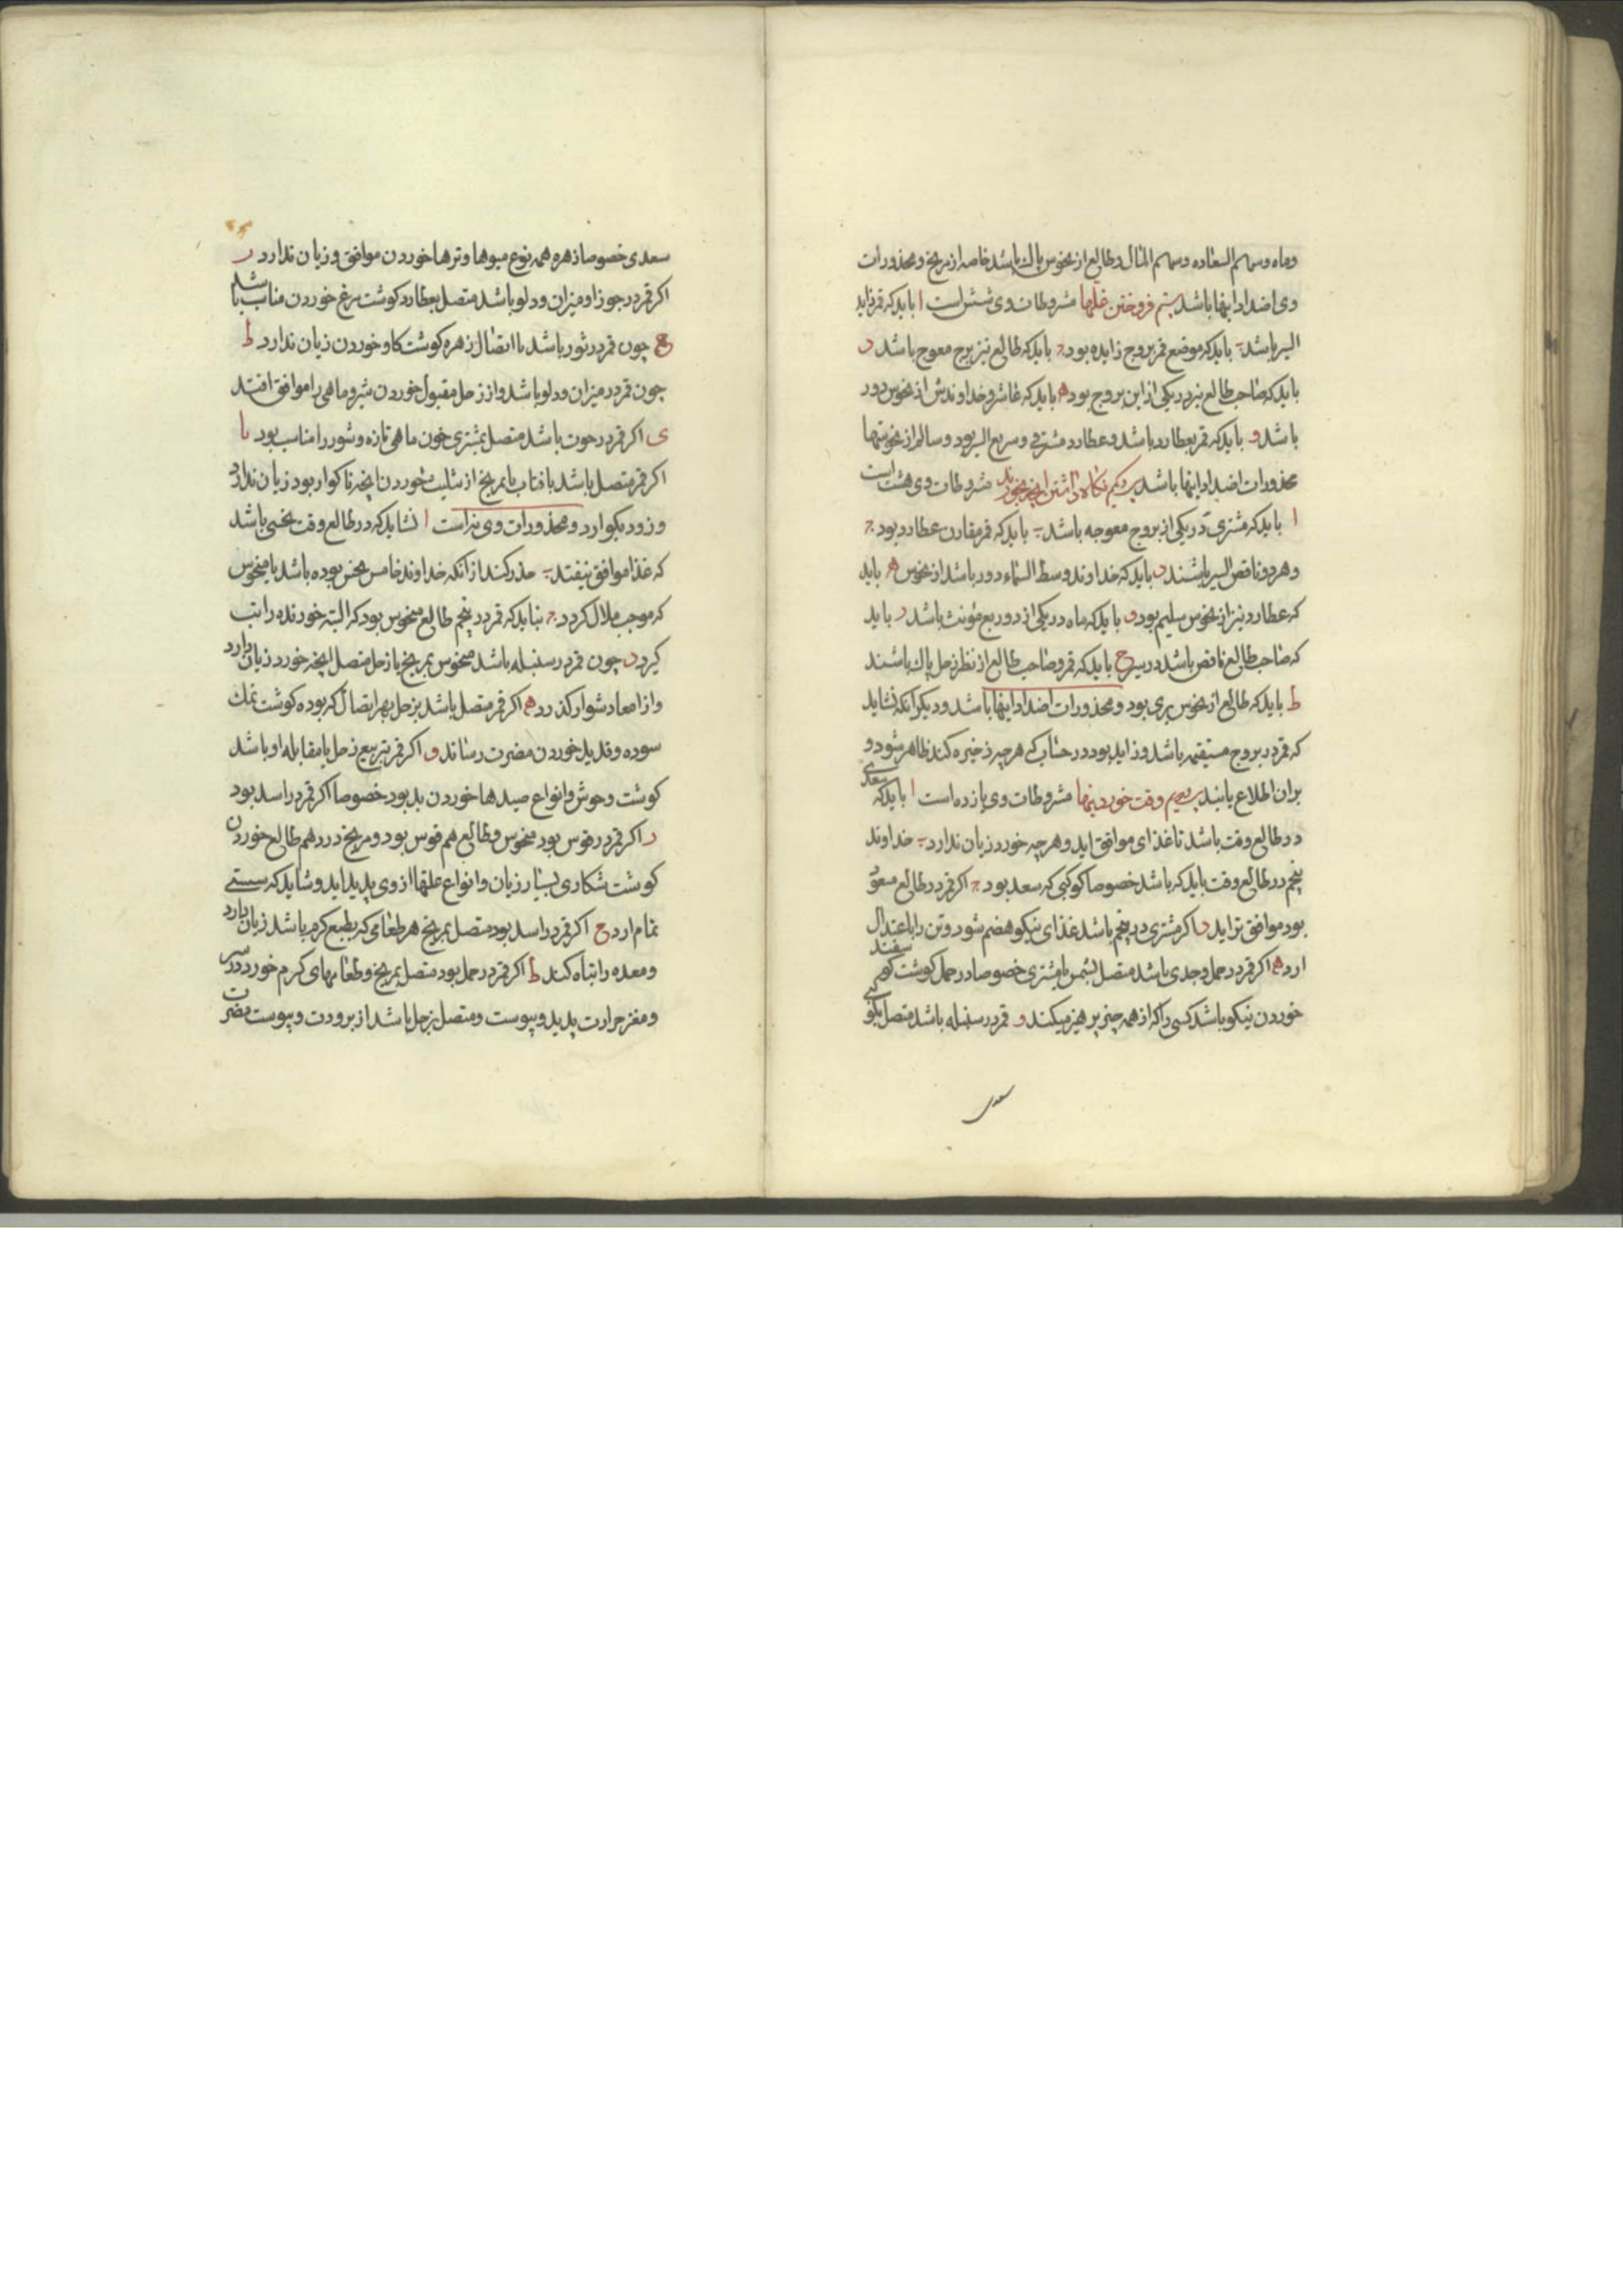 وماه وسهم السعاده وسهم المال وطالع از نحوس پاك باشد خاصه از مریخ ومحذورات
وی اضداد اینها باشد بیستم فروختن غلّها مشروطات وی شش است ا باید که قمر زاید
السیر باشد ب باید که موضع قمر بروج زایده بود ج باید که طالع نیز برج معوج باشد د
باید که صاحب طالع نیز در یکی از این بروج بود ه باید که عاشر وخداوندش از نحوس دور
باشد و باید که قمر بعطارد باشد وعطارد مشرقی وسریع السیر بود وسالم از نحوستها
محذورات اضداد اینها باشد نکاه داشتن مشروطات وی هشت است
ا باید که مشتری در یکی از بروج معوجه باشد ب باید که قمر مقارن عطارد بود ج
وهر دو ناقص السیر باشند د باید که خداوند وسط السماء دور باشد از نحوس ه باید
که عطارد نیز از نحوس سلیم بود و باید که ماه در یکی از دو ربع مؤنث باشد ر باید
که صاحب طالع ناقص باشد در سیر ح باید که قمر وصاحب طالع از نظر زحل پاك باشند
ط باید که طالع از نحوس بری بود ومحذورات اضداد اینها باشد ودیکر انکه نشاید
که قمر در بروج مستقیمه باشد وزاید بود در حساب که هر چه ذخیره کند ظاهر شود و
بران اطلاع یابند وقت خوردنیها مشروطات وی یازده است ا باید که سعدی
در طالع وقت باشد تا غذای موافق اید وهر چه خورد زیان ندارد ب خداوند
پنجم در طالع وقت باید که باشد خصوصا کوکبی که سعد بود ج اکر قمر در طالع مسعود
بود موافق تر اید د اکر مشتری در پنجم باشد غذای نیکو هضم شود وتن را باعتدال
ارد ه اکر قمر در حمل وجدی باشد متصل بشمس یا مشتری خصوصا در حمل کوشت کوسفند
خوردن نیکو باشد کسی را که از همه چیز پرهیز میکند و قمر در سنبله باشد متصل بکوکبی
سعدی
سعدی خصوصا زهره همه نوع میوها وترها خوردن موافق وزیان ندارد ر
اکر قمر در جوزا ومیزان ودلو باشد متصل بعطارد کوشت مرغ خوردن مناسب باشد
ح چون قمر در ثور باشد با اتصال زهره کوشت کاو خوردن زیان ندارد ط
چون قمر در میزان ودلو باشد واز زحل مقبول خوردن شیر وماهی را موافق افتد
ی اکر قمر در حوت باشد متصل بمشتری خون ماهی تازه وشور را مناسب بود یا
اکر قمر متصل باشد بافتاب یا بمریخ از تثلیث خوردن انچه ناکوار بود زیان ندارد
وزود بکوارد ومحذورات وی نه است ا نشاید که در طالع وقت نحسی باشد
که غذا موافق نیفتد ب حذر کند از انکه خداوند خامس نحس بوده باشد یا منحوس
که موجب ملال کردد ج نباید که قمر در پنجم طالع منحوس بود که البته خورنده را تب
کیرد د چون قمر در سنبله باشد منحوس بمریخ یا زحل متصل انچه خورد زیان دارد
واز امعا دشوار کذرد ه اکر قمر متصل باشد بزحل بهر اتصال که بوده کوشت نمك
سوده وقدید خوردن مضرت رساند و اکر قمر بتربیع زحل یا مقابله او باشد
کوشت وحوش وانواع صیدها خوردن بد بود خصوصا اکر قمر در اسد بود
ر اکر قمر در قوس بود منحوس وطالع هم قوس بود ومریخ در دهم طالع خوردن
کوشت شکاری بسیار زیان وانواع علتها از وی پدید اید وشاید که سستی
تمام ارد ح اکر قمر در اسد بود متصل بمریخ هر طعامی که بطبع کرم باشد زیان دارد
ومعده را تباه کند ط اکر قمر در حمل بود متصل بمریخ وطعامهای کرم خورد در سر
ومغز حرارت پدید وپیوست ومتصل بزحل باشد از برودت ویبوست مضرت